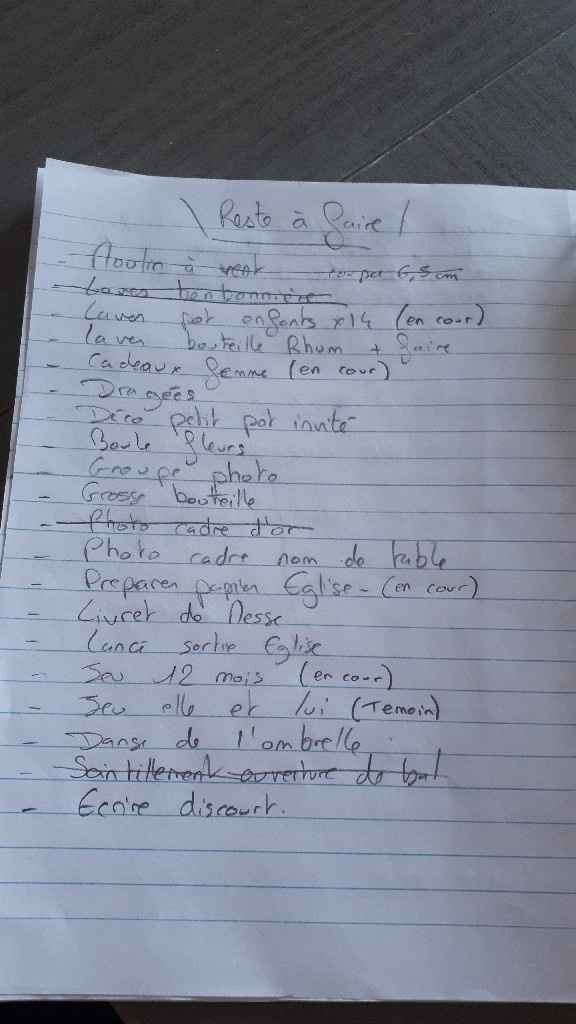 \ Reste à faire /
- Moulin à vent 6,5 cm
- Laver bonbonnière
- Laver pot enfants x14 (en cour)
- Laver bouteille Rhum + faire
- Cadeaux femme (en cour)
- Dragées
- Déco petit pot invité
- Boule fleurs
- Groupe photo
- Grosse bouteille
- Photo cadre d'or
- Photo cadre nom de table
- Preparer papier Eglise - (en cour)
- Livret de Messe
- Lancé sortie Eglise
- Jeu 12 mois (en cour)
- Jeu elle et lui (Temoin)
- Danse de l'ombrelle.
- ouverture de bal
- Ecrire discourt.